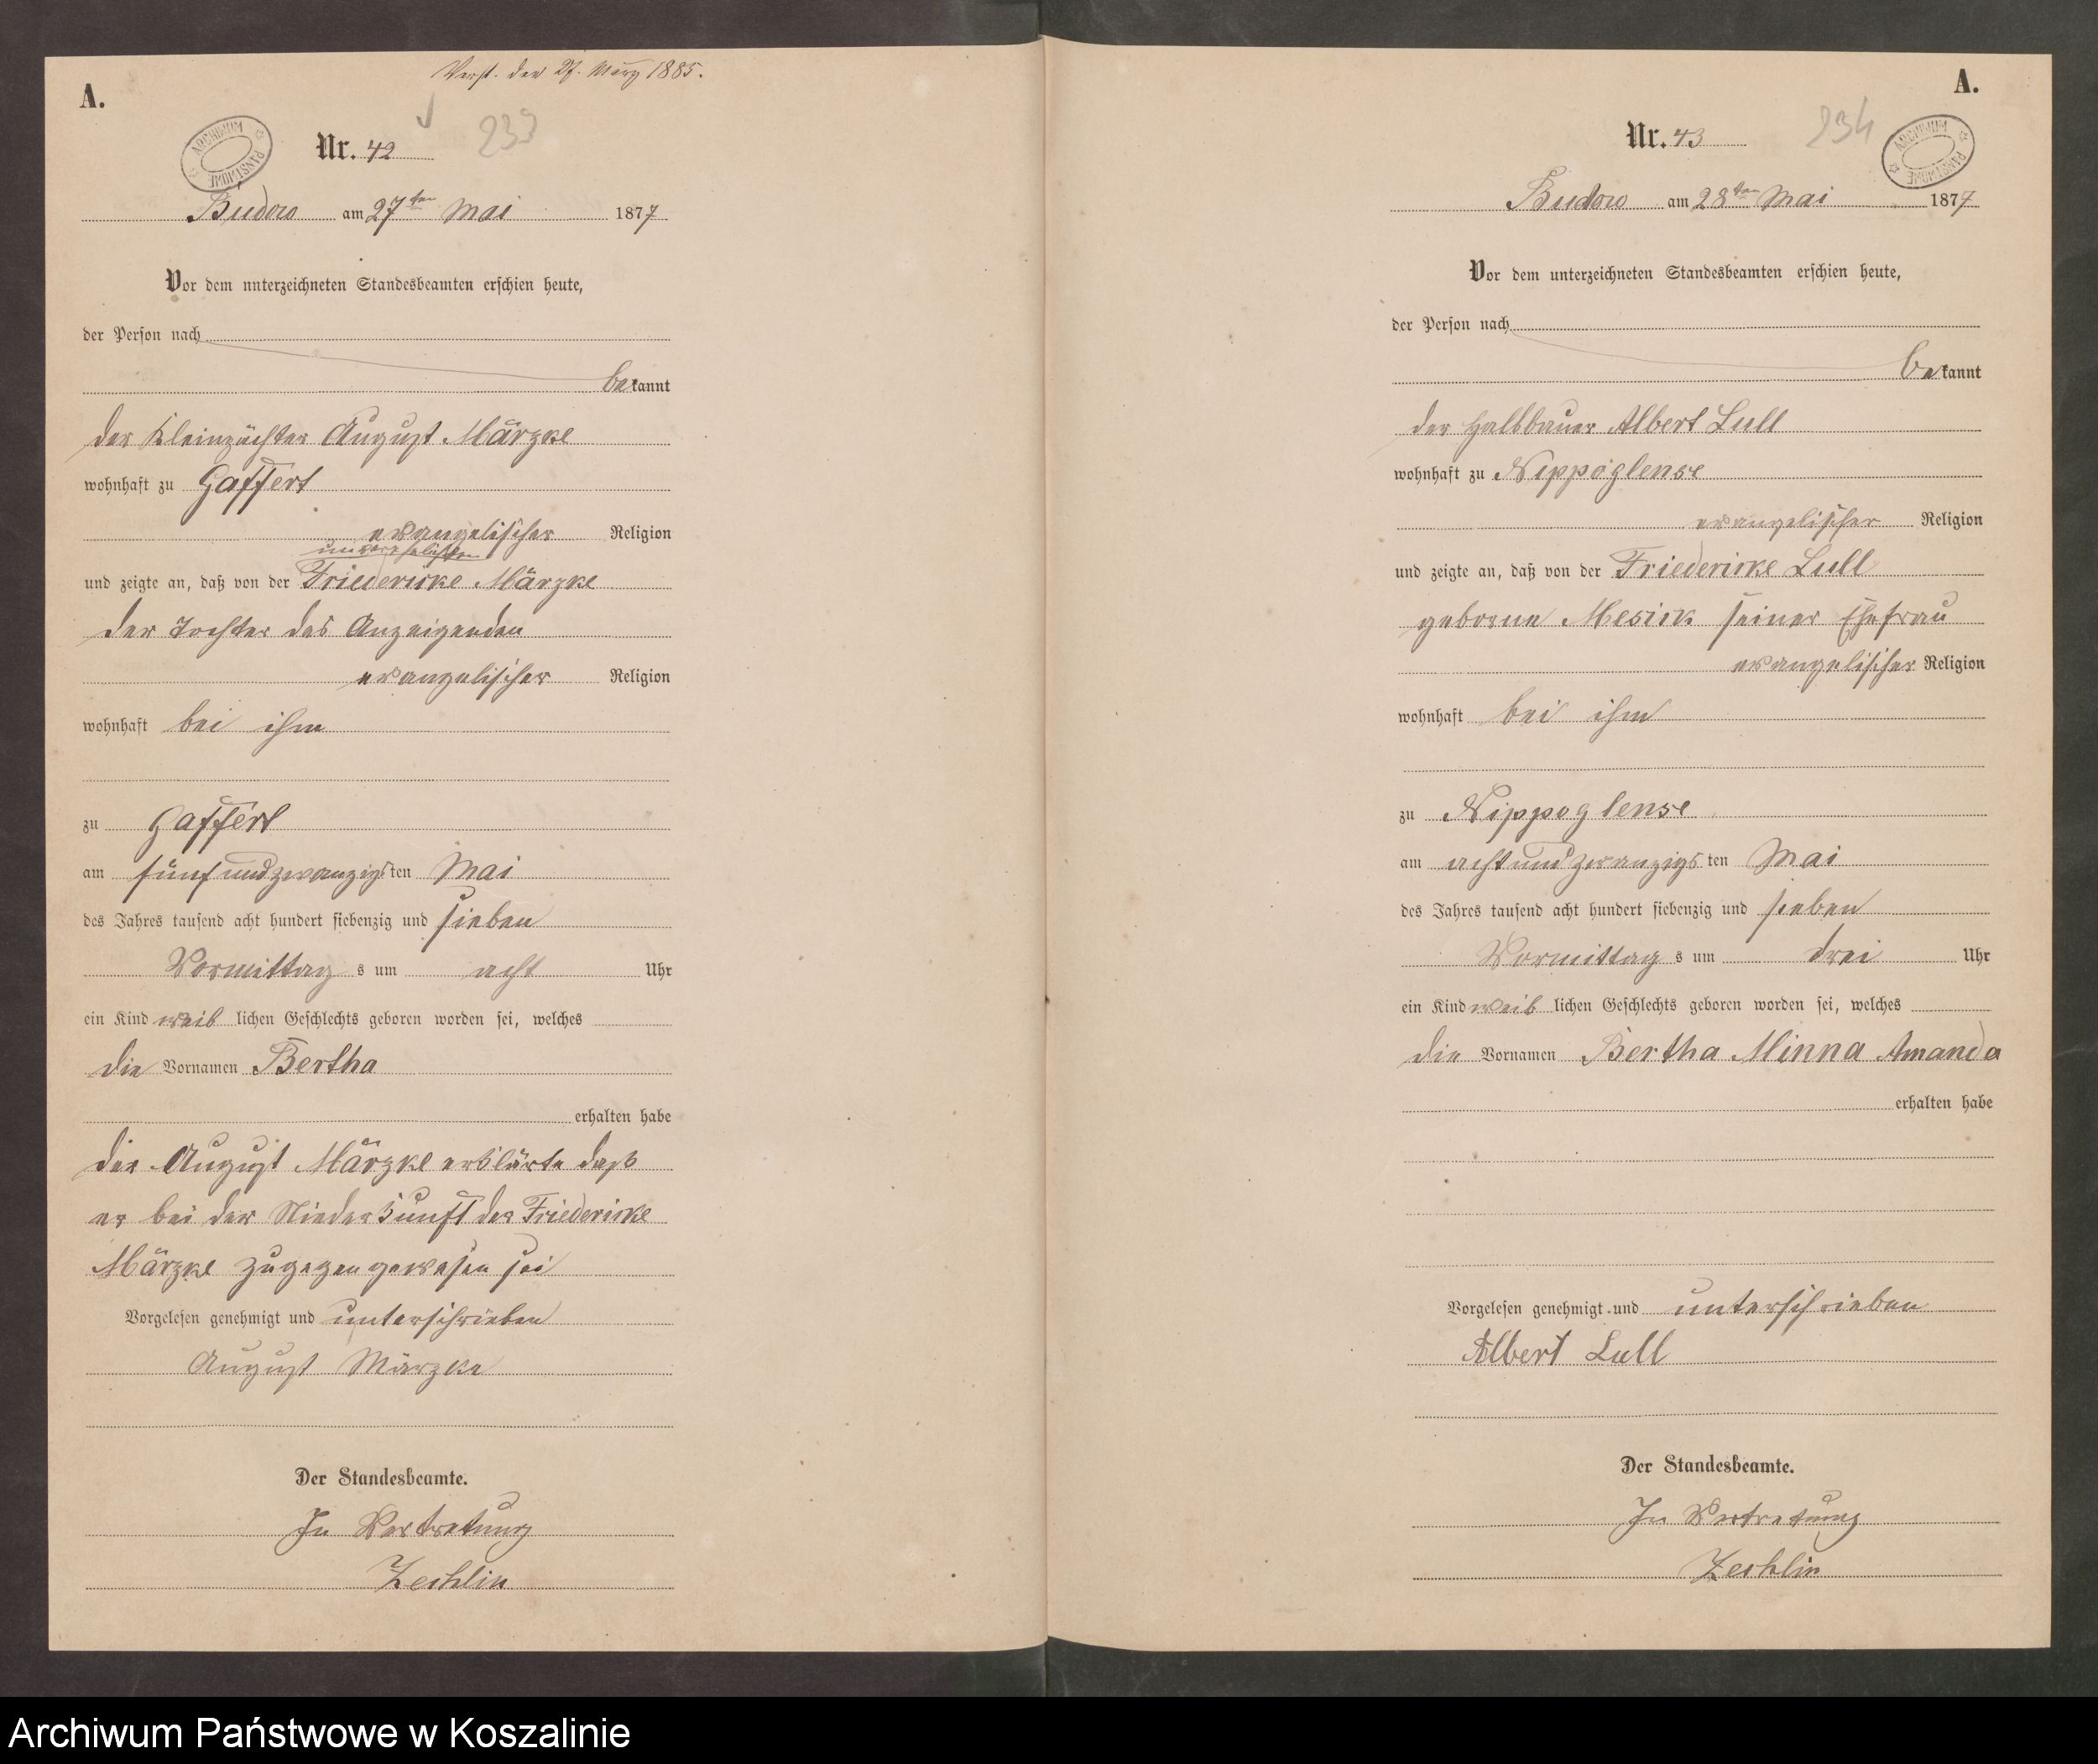 Verst. den 27. März 1885.
A.
ARCHIWUM PAŃSTWOWE
Nr. 42
233
Budow am 27ten Mai 1877
Vor dem unterzeichneten Standesbeamten erschien heute,
der Person nach
bekannt
der Kleinpächter August Märzke
wohnhaft zu Gaffert
evangelischer Religion
unverehelichten
und zeigte an, daß von der Friedericke Märzke
der Tochter des Anzeigenden
evangelischer Religion
wohnhaft bei ihm
zu Gaffert
am fünfundzwanzigsten Mai
des Jahres tausend acht hundert siebenzig und sieben
Vormittags um acht Uhr
ein Kind weiblichen Geschlechts geboren worden sei, welches
die Vornamen Bertha
erhalten habe
der August Märzke erklärte daß
er bei der Niederkunft der Friedericke
Märzke zugegen gewesen sei
Vorgelesen genehmigt und unterschrieben
August Märzke
Der Standesbeamte.
In Vertretung
Zechlin
A.
234
ARCHIWUM PAŃSTWOWE
Nr. 43
Budow am 28ten Mai 1877
Vor dem unterzeichneten Standesbeamten erschien heute,
der Person nach
bekannt
der Halbbauer Albert Lull
wohnhaft zu Nippoglense
evangelischer Religion
und zeigte an, daß von der Friedericke Lull
geborne Mesick seiner Ehefrau
evangelischer Religion
wohnhaft bei ihm
zu Nippoglense
am achtundzwanzigsten Mai
des Jahres tausend acht hundert siebenzig und sieben
Vormittags um drei Uhr
ein Kind weiblichen Geschlechts geboren worden sei, welches
die Vornamen Bertha Minna Amanda
erhalten habe
Vorgelesen genehmigt und unterschrieben
Albert Lull
Der Standesbeamte.
In Vertretung
Zechlin
Archiwum Państwowe w Koszalinie